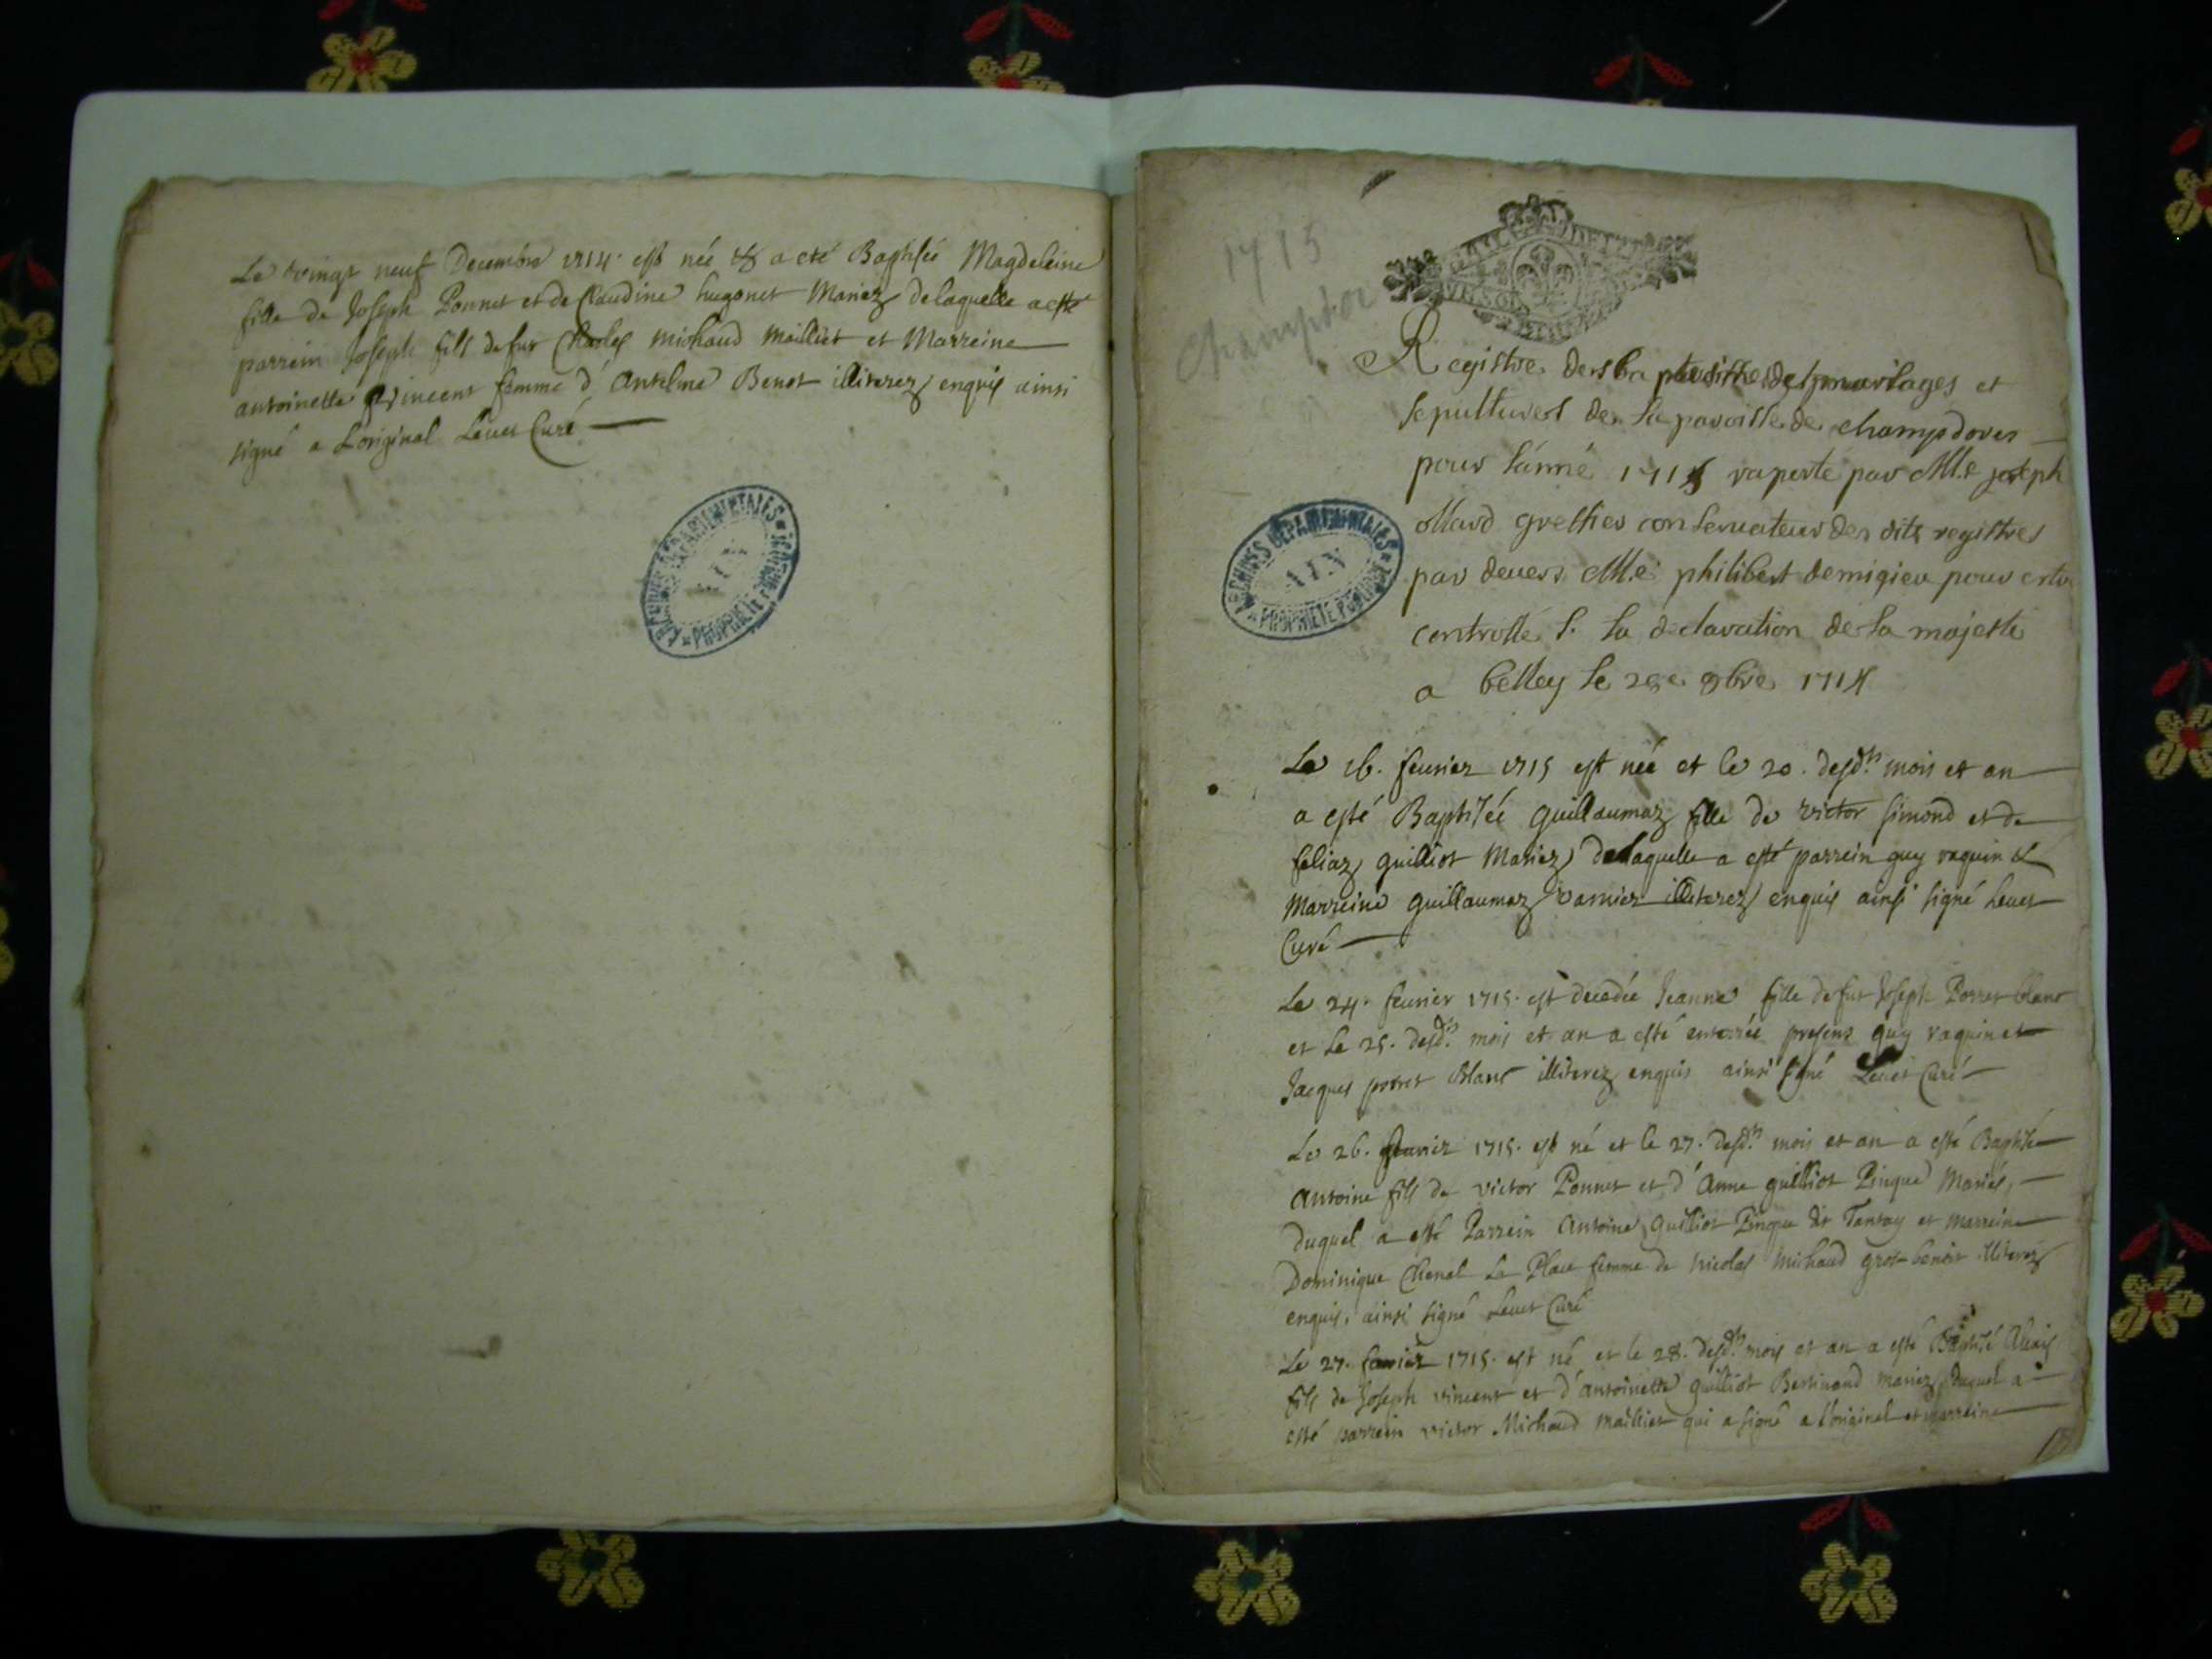 Le vingt neuf Decembre 1714 est née & a eté Baptisée Magdeleine
fille de Joseph Ponnet et de Claudine hugonet Mariez delaquelle a esté
parrein Joseph fils de fut Charles Michaud Mailliet et Marreine
antoinette Vincent femme d'Anselme Benot illiterez enquis ainsi
signé a Loriginal Levet Curé
ARCHIVES DEPARTEMENTALES
AIN
PROPRIETE PUBLIQUE
1715
Champdor
Registre des baptesme de mariages et
sepultures de la paroisse de champdores
pour l'anné 1715 raporté par M.e joseph
ollard greffier conservateur des dits registres
par devers M.e philibert demigieu pour estre
controllé s. la declaration de sa majesté
a belley le 9bre 1714
ARCHIVES DEPARTEMENTALES
AIN
PROPRIETE PUBLIQUE
Le 16. fevrier 1715 est née et le 20. desd.ts mois et an
a esté Baptisée guillaumaz fille de victor simond et de
feliaz guilliot Mariez delaquelle a esté parrein guy vaquin &
Marreine guillaumaz varnier illiterez enquis ainsi signé Levet
Curé
Le 24. fevrier 1715. est decedée Jeanne fille de fut Joseph Porret blanc
et le 25. desd.ts mois et an a esté enterrée presens guy vaquin et
Jacques porret Blanc illiterez enquis ainsi signé Levet Curé
Le 26. fevrier 1715. est né et le 27. desd.ts mois et an a esté Baptisé
Antoine fils de victor Ponnet et d'Anne guilliot Pingue Mariés,
duquel a esté Parrein Antoine guilliot Pingue dit Tantay et marreine
Dominique Chenal La Place femme de Nicolas Michaud gros benoit illiterez
enquis, ainsi signé Levet Curé
Le 27. fevrier 1715. est né et le 28. desd.ts mois et an a esté Baptisé Alexis
fils de Joseph vincent et d'antoinette guilliot Bertinand mariez, duquel a
esté parrein victor Michaud Mailliet qui a signé a l'original et marreine